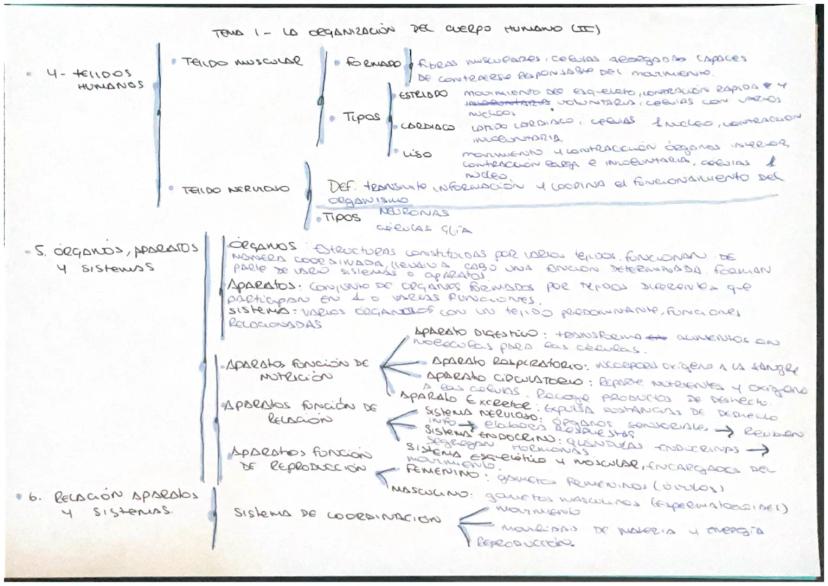 TEMA 1 - LA ORGANIZACIÓN DEL CUERPO HUMANO (II)
4- TEJIDOS HUMANOS
TEJIDO MUSCULAR
FORMADO
fibras musculares, células alargadas capaces
de contraerse responsable del movimiento.
TIPOS
ESTRIADO
movimiento del esqueleto, contracción rápida y
voluntaria, células con varios
núcleos.
CARDIACO
latido cardiaco, células 1 núcleo, contracción
involuntaria.
LISO
movimiento y contracción órganos interior,
contracción larga e involuntaria, células 1
núcleo.
TEJIDO NERVIOSO
DEF. transmite información y coordina el funcionamiento del
organismo
TIPOS
NEURONAS
células GLÍA
5. ÓRGANOS, APARATOS
Y SISTEMAS
ÓRGANOS estructuras constituidas por varios tejidos. funcionan de
manera coordinada, llevan a cabo una función determinada. forman
parte de varios sistemas o aparatos
APARATOS: conjunto de órganos formados por tejidos diferentes que
participan en 1 o varias funciones.
SISTEMA: varios órganos con un tejido predominante, funciones
relacionadas
APARATOS FUNCIÓN DE
NUTRICIÓN
APARATO DIGESTIVO: transforma alimentos en
moléculas para las células.
APARATO RESPIRATORIO: incorpora oxígeno a la sangre
APARATO CIRCULATORIO: Reparte nutrientes y oxígeno
a las células. Recoge productos de desecho.
APARATO EXCRETOR: expulsa sustancias de desecho
APARATOS FUNCIÓN DE
RELACIÓN
SISTEMA NERVIOSO: órganos sensoriales → Reciben
info → elabora respuestas
SISTEMA ENDOCRINO: glándulas endocrinas →
segregan hormonas
SISTEMA esquelético y muscular, encargados del
movimiento.
APARATOS FUNCIÓN
DE REPRODUCCIÓN
FEMENINO: gametos femeninos (óvulos)
MASCULINO: gametos masculinos (espermatozoides)
6. RELACIÓN APARATOS
Y SISTEMAS
SISTEMA DE COORDINACIÓN
movimiento
de materia y energía
REPRODUCCIÓN